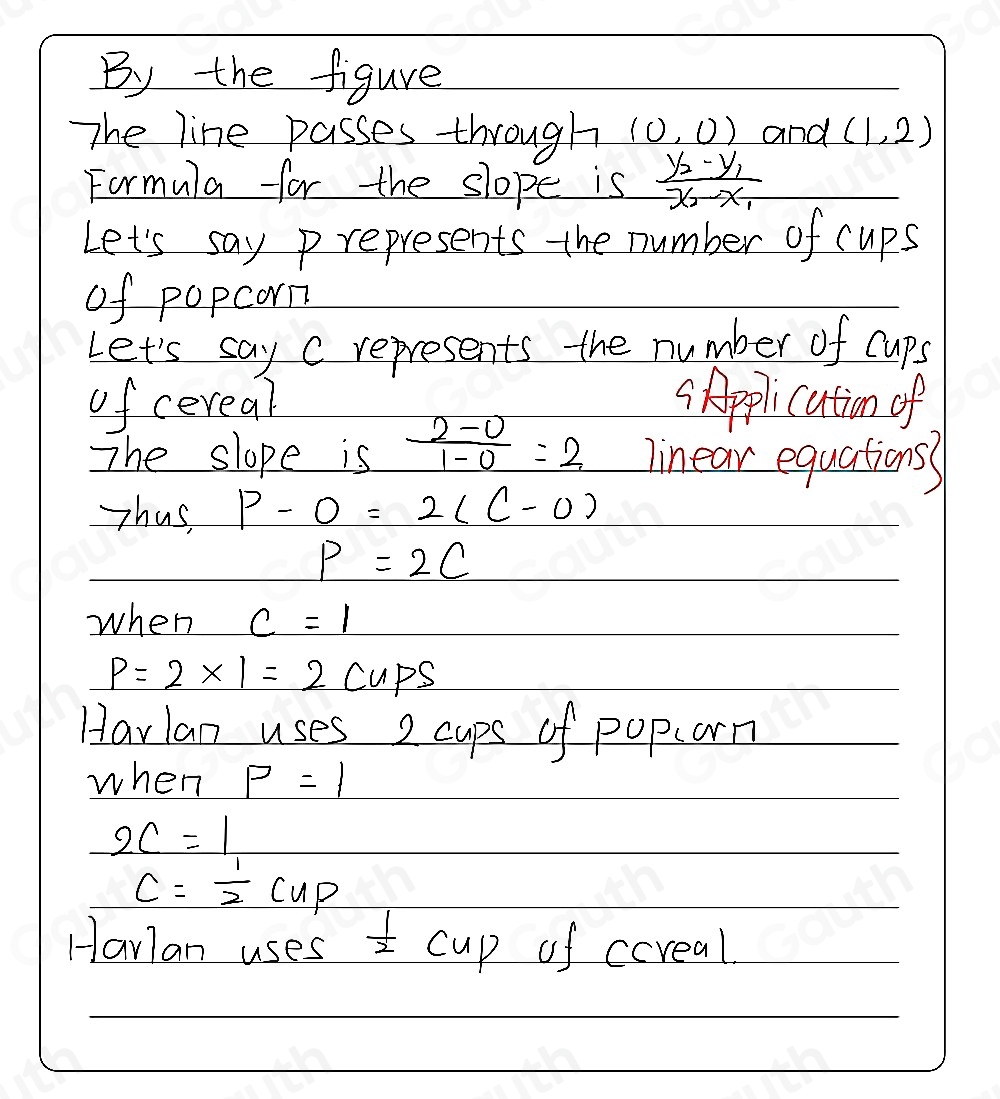 By the figure
The line passes through (0,0) and (1,2)
Formula for the slope is y₂-y₁/x₂-x₁
Let's say p represents the number of cups
of popcorn
Let's say C represents the number of cups
of cereal
The slope is 2-0/1-0 = 2
{Application of
linear equations}
Thus, P - 0 = 2(C-0)
P = 2C
when C = 1
P = 2 × 1 = 2 cups
Harlan uses 2 cups of popcorn
when P = 1
2C = 1
C = 1/2 cup
Harlan uses 1/2 cup of ccreal.
Gauth